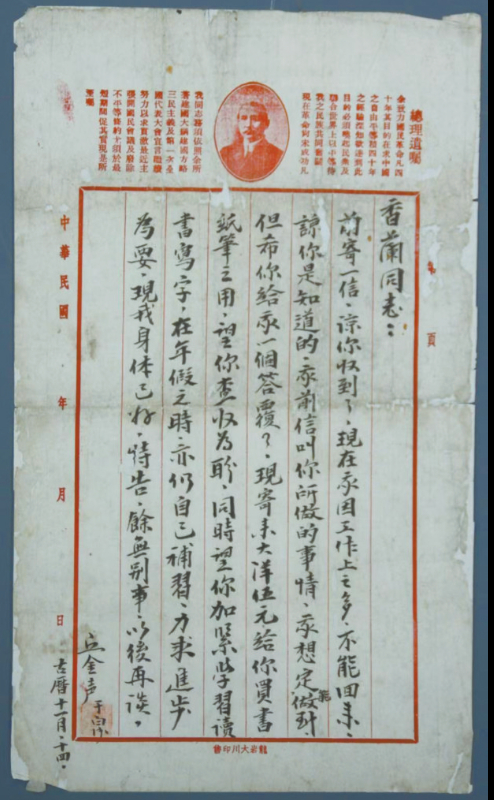 總理遺囑
余致力國民革命凡四
十年其目的在求中國
之自由平等積四十年
之經驗深知欲達到此
目的必須喚起民衆及
聯合世界上以平等待
我之民族共同奮鬥
現在革命尚未成功凡
我同志務須依照余所
著建國大綱建國方略
三民主義及第一次全
國代表大會宣言繼續
努力以求貫徹最近主
張開國民會議及廢除
不平等條約尤須於最
短期間促其實現是所
至囑
頁
香蘭同志：
前寄一信，諒你收到了，現在我因工作上之多，不能回來，
諒你是知道的，我前信叫你所做的事情，我想定能做到
但希你給我一個答覆了，現寄來大洋伍元，給你買書
紙筆之用，望你查收為盼，同時望你加緊學習讀
書寫字，在年假之時，亦仍自己補習，力求進步
為要，現我身体已好，特告，餘無别事，以後再談，
丘金声于白沙
古曆十一月·十四·
中華民國 年 月 日
龍岩大川印售